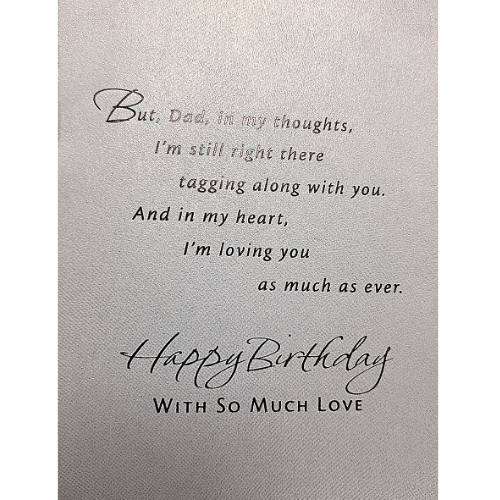 But, Dad, in my thoughts,
I'm still right there
tagging along with you.
And in my heart,
I'm loving you
as much as ever.
Happy Birthday
WITH SO MUCH LOVE